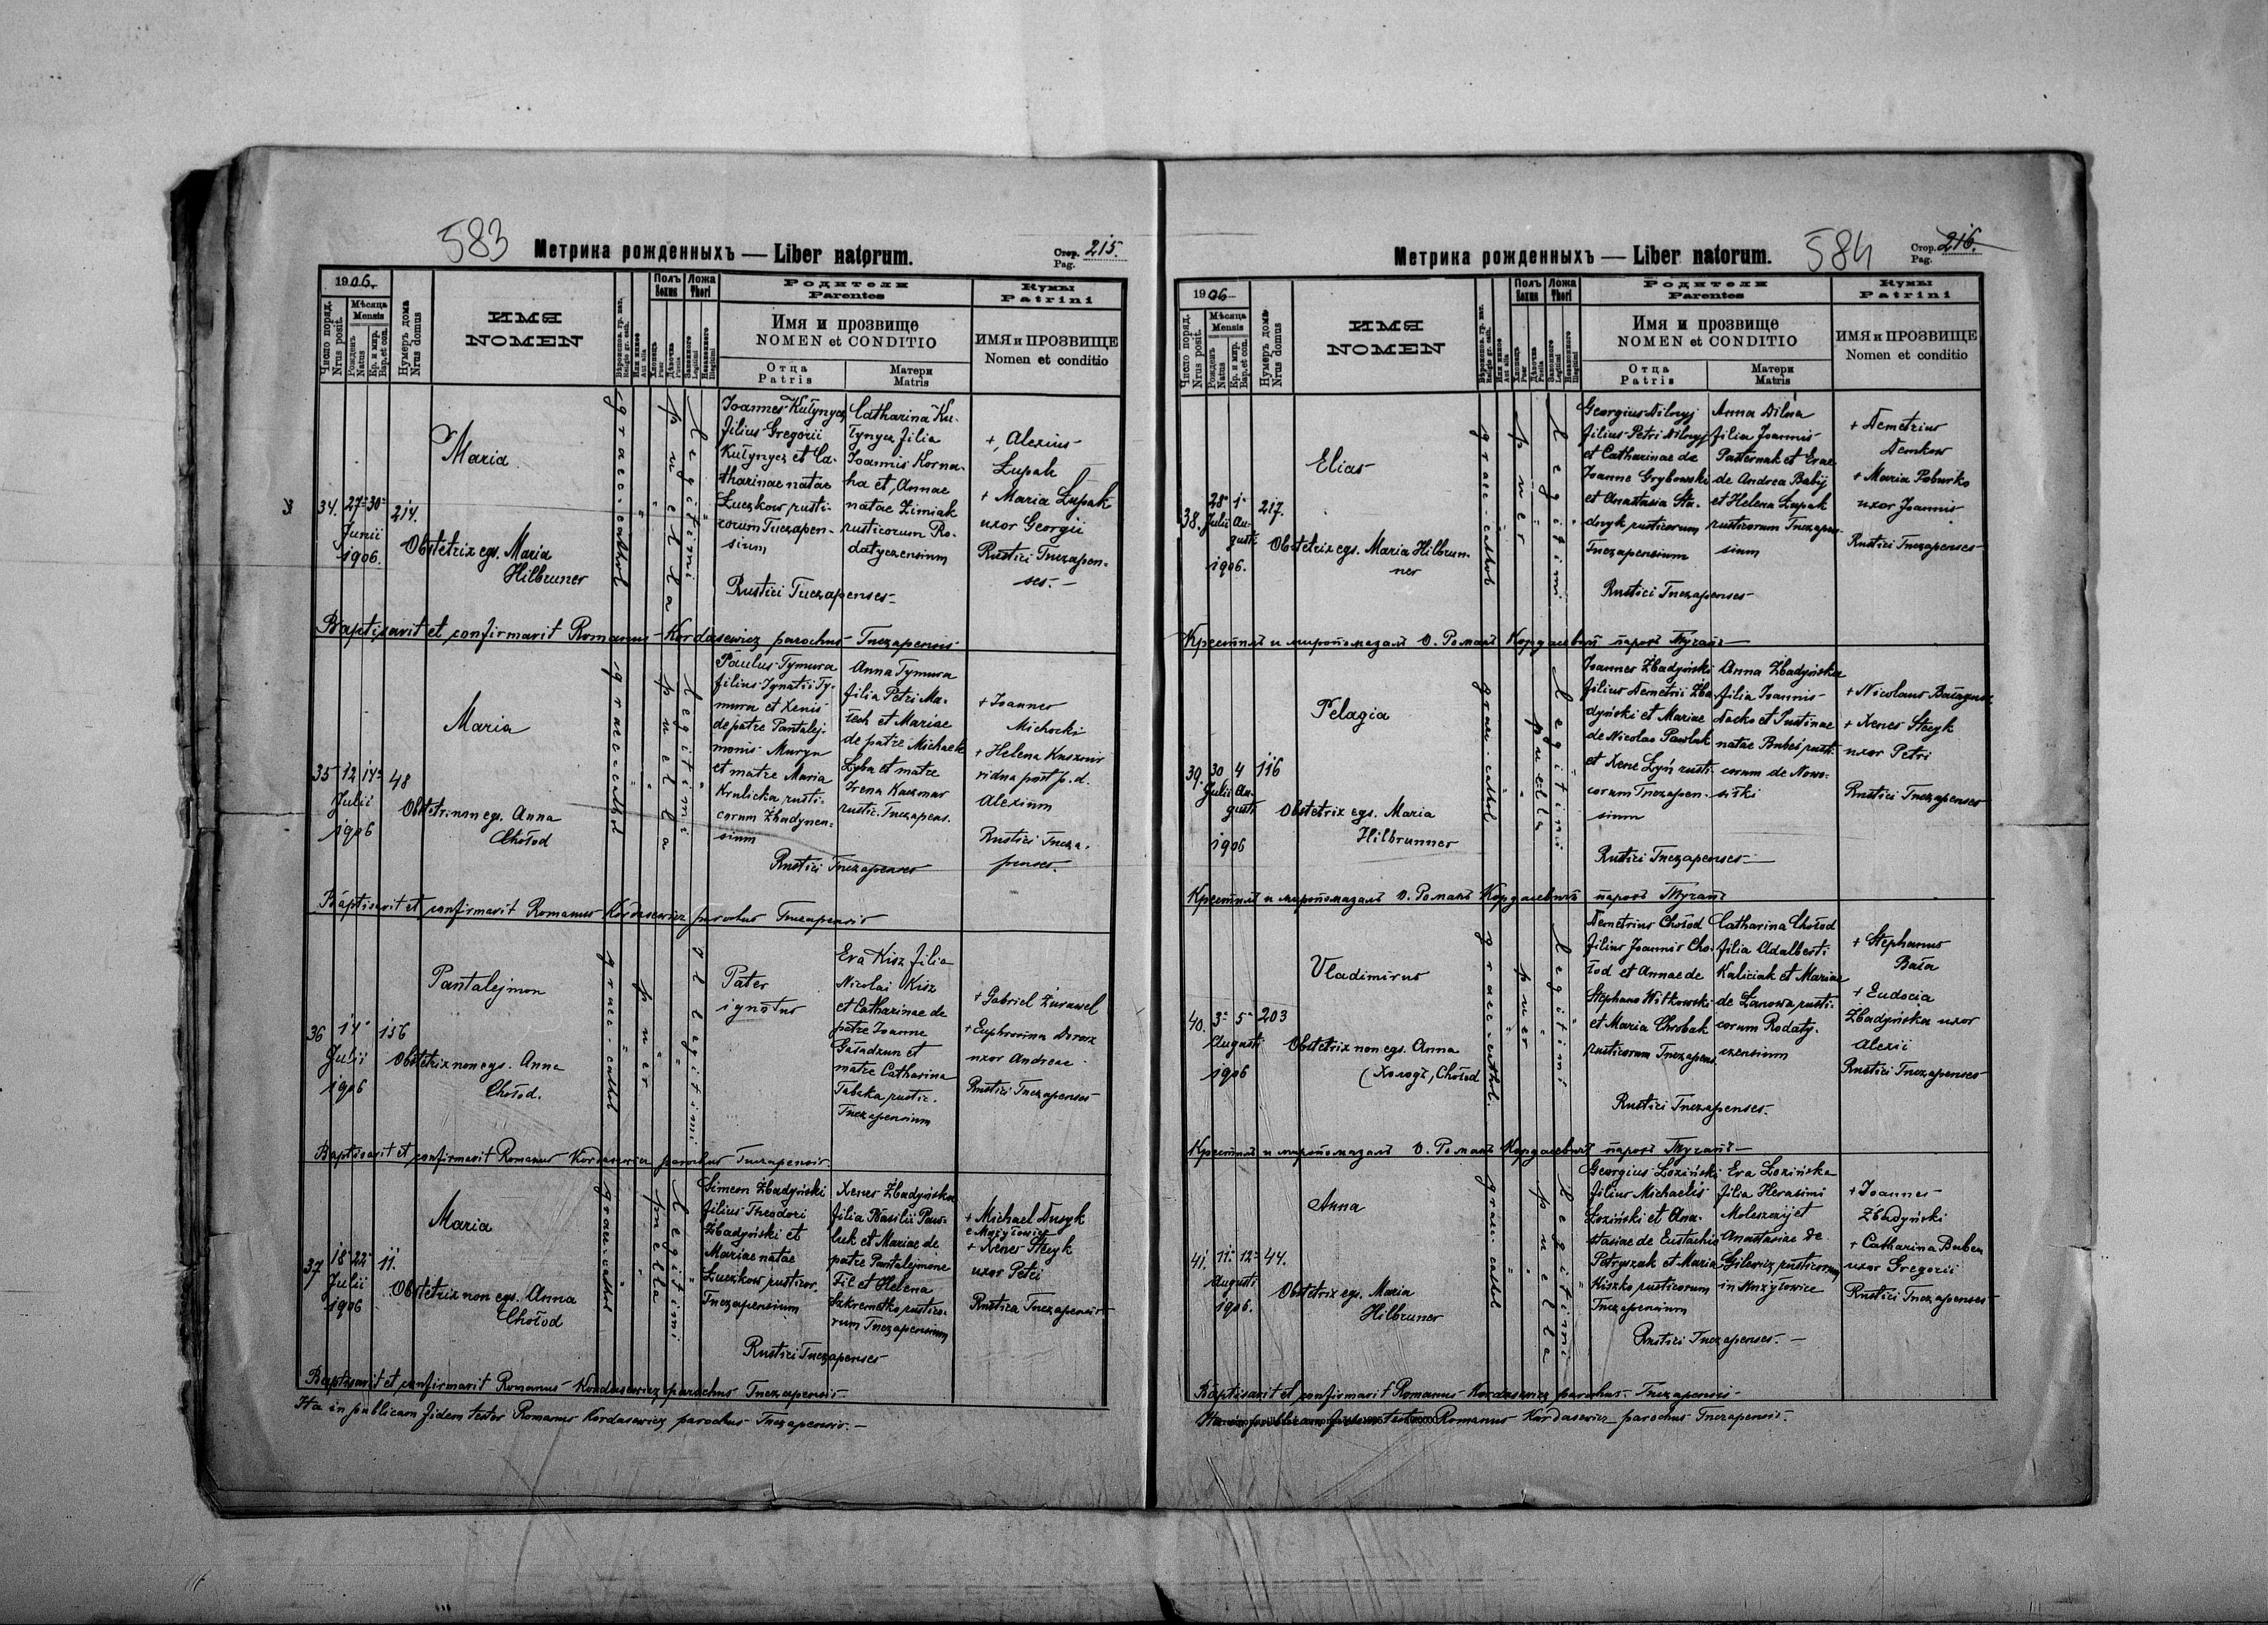 583
Метрика рожденныхъ — Liber natorum.
Стор. Pag. 215.
1906.
Число поряд. Nrus posit.
Мѣсяца Mensis
Рожденъ Natus
Кр. и мир. Bap. et con.
Нумеръ дома Nrus domus
ИМЯ
NOMEN
Religio gr. cath.
Или инное Aut alia
Полъ Sexus
Хлопець Puer
Дѣвочка Puella
Ложа Thori
Законного Legitimi
Незаконного Illegitimi
Родители
Parentes
Имя и прозвище
NOMEN et CONDITIO
Отца
Patris
Матери
Matris
Кумы
Patrini
ИМЯ и ПРОЗВИЩЕ
Nomen et conditio
34. 27 30 Junii 1906. 214.
Maria
Obstetrix egs. Maria
Hilbruner
graec-cathol
puella
legitimi
Joannes Kułynycz
filius Gregorii
Kułynycz et Ca-
tharinae natae
Łuczkow rusti-
corum Tuczapen-
sium
Catharina Ku-
łynycz filia
Joannis Korna-
ha et Annae
natae Zimiak
rusticorum Ro-
datyczensium
Rustici Tuczapenses
+ Alexius
Łupak
+ Maria Łupak
uxor Georgii
Rustici Tuczapen-
ses.
Baptisavit et confirmavit Romanus Kordasewicz parochus Tuczapensis
35 12 14 Julii 1906 48
Maria
Obstetr. non egs. Anna
Chołod
graec-cathol
puella
legitimi
Paulus Tymura
filius Ignatii Ty-
mura et Xenis
de patre Pantalej-
monis Muryn
et matre Maria
Krulicka rusti-
corum Zbadynen-
sium
Anna Tymura
filia Petri Ma-
łech et Mariae
de patre Michaele
Łyba et matre
Irena Kaczmar
rustic. Tuczapens.
Rustici Tuczapenses
+ Joannes
Michocki
+ Helena Kusznir
ridna post p. d.
Alexium
Rustici Tucza-
penses.
Baptisavit et confirmavit Romanus Kordasewicz parochus Tuczapensis
36 14 Julii 1906 156
Pantalejmon
Obstetrix non egs. Anna
Chołod.
graec-cathol
puer
illegitimi
Pater
ignotus
Eva Kisz filia
Nicolai Kisz
et Catharinae de
patre Joanne
Gaładzun et
matre Catharina
Tabaka rustic.
Tuczapensium
+ Gabriel Żurawel
+ Euphrosina
uxor Andreae
Rustici Tuczapenses
Baptisavit et confirmavit Romanus Kordasewicz parochus Tuczapensis
37 18 22 Julii 1906 11.
Maria
Obstetrix non egs. Anna
Chołod
graec-cathol
puella
legitimi
Simeon Zbadyński
filius Theodori
Zbadyński et
Mariae natae
Łuczkow rusticor.
Tuczapensium
Xenes Zbadyńska
filia Basilii Paw-
luk et Mariae de
patre Pantalejmone
Fil et Helena
Szkremetko rustico-
rum Tuczapensium
Rustici Tuczapenses
+ Michael Dusyk
e Mużyłowice
+ Xenes Stecyk
uxor Petri
Rustica Tuczapensis
Baptisavit et confirmavit Romanus Kordasewicz parochus Tuczapensis
Ita in publicam fidem testor Romanus Kordasewicz parochus Tuczapensis.
Метрика рожденныхъ — Liber natorum.
584
Стор. Pag. 216.
1906
Число поряд. Nrus posit.
Мѣсяца Mensis
Рожденъ Natus
Кр. и мир. Bap. et con.
Нумеръ дома Nrus domus
ИМЯ
NOMEN
Religio gr. cath.
Или инное Aut alia
Полъ Sexus
Хлопець Puer
Дѣвочка Puella
Ложа Thori
Законного Legitimi
Незаконного Illegitimi
Родители
Parentes
Имя и прозвище
NOMEN et CONDITIO
Отца
Patris
Матери
Matris
Кумы
Patrini
ИМЯ и ПРОЗВИЩЕ
Nomen et conditio
38. 28 Julii 1 Augusti 1906. 217.
Elias
Obstetrix egs. Maria Hilbrun-
ner
graec-cathol
puer
legitimi
Georgius Dilnyj
filius Petri Dilnyj
et Catharinae de
Joanne Grybowski
et Anastasia Sta-
dnyk rusticorum
Tuczapensium
Anna Dilna
filia Joannis
Pasternak et Evae
de Andrea Babij
et Helena Łupak
rusticorum Tuczapen-
sium
Rustici Tuczapenses
+ Demetrius
Demkow
+ Maria Poburko
uxor Joannis
Rustici Tuczapenses
Крестилъ и миропомазалъ О. Романъ Кордасевичъ парохъ Тучапъ
39. 30 Julii 4 Augusti 1906 116
Pelagia
Obstetrix egs. Maria
Hilbrunner
graec-cathol
puella
legitimi
Joannes Zbadyński
filius Demetrii Zba-
dyński et Mariae
de Nicolao Pawluk
et Xene Łyń rusti-
corum Tuczapen-
sium
Anna Zbadyńska
filia Joannis
Dacko et Justinae
natae Bubeś rusti-
corum de Nowo-
siłki
Rustici Tuczapenses
+ Nicolaus
+ Xenes Stecyk
uxor Petri
Rustici Tuczapenses
Крестилъ и миропомазалъ О. Романъ Кордасевичъ парохъ Тучапъ
40. 3 5 Augusti 1906 203
Vladimirus
Obstetrix non egs. Anna
(Холодъ, Chołod
graec-cathol.
puer
legitimi
Demetrius Chołod
filius Joannis Cho-
łod et Annae de
Stephano Witkowski
et Maria Chrobak
rusticorum Tuczapens.
Catharina Chołod
filia Adalberti
Kaliciak et Mariae
de Łanowa rusti-
corum Rodaty-
czensium
Rustici Tuczapenses.
+ Stephanus
Bała
+ Eudocia
Zbadyńska uxor
Alexii
Rustici Tuczapenses
Крестилъ и миропомазалъ О. Романъ Кордасевичъ парохъ Тучапъ
41. 11 12 Augusti 1906. 44.
Anna
Obstetrix egs. Maria
Hilbruner
graec. cathol
puella
legitimi
Georgius Łoziński
filius Michaelis
Łoziński et Ana-
stasiae de Eustachio
Petryszak et Maria
Kiszko rusticorum
Tuczapensium
Eva Łozińska
filia Herasimi
Moleszczij et
Anastasiae de
Gilewicz rusticorum
in Mużyłowice
Rustici Tuczapenses.
+ Joannes
Zbadyński
+ Catharina Buben
uxor Gregorii
Rustici Tuczapenses
Baptisavit et confirmavit Romanus Kordasewicz parochus Tuczapensis
Ita in publicam fidem testor Romanus Kordasewicz parochus Tuczapensis.